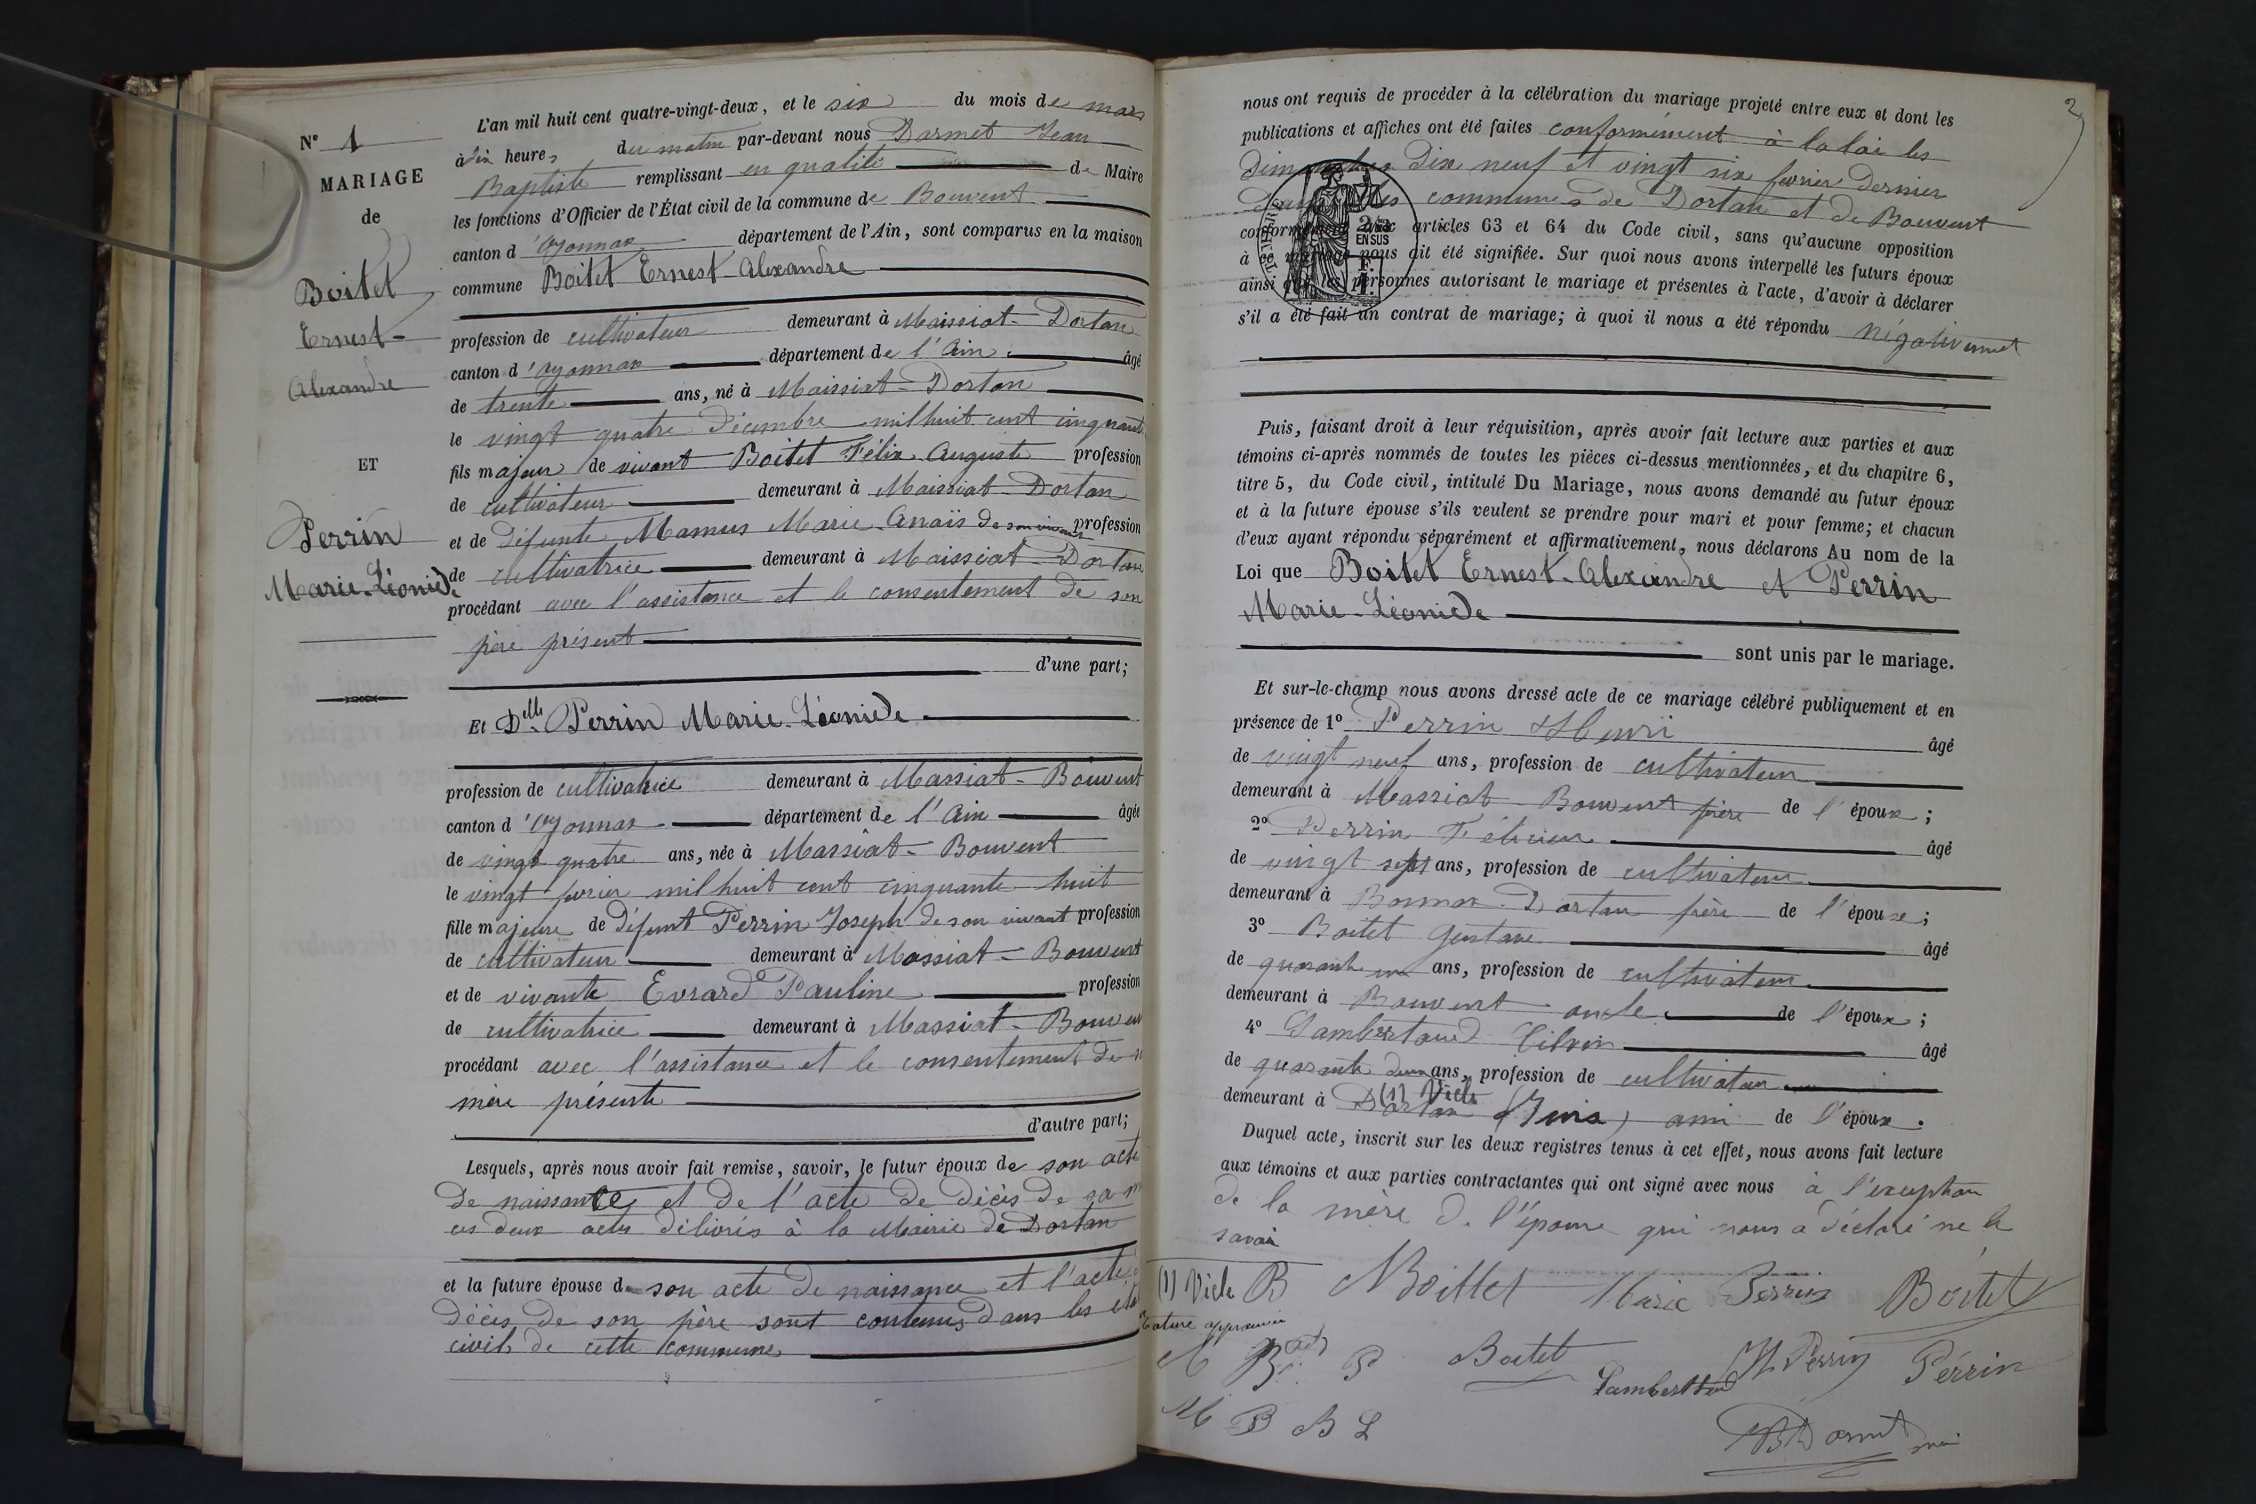 N° 1
MARIAGE
de
Boitet
Ernest
Alexandre
ET
Perrin
Marie-Léonide
L'an mil huit cent quatre-vingt-deux, et le six du mois de mars
à dix heures du matin par-devant nous Darmet Jean
Baptiste remplissant en qualité de Maire
les fonctions d'Officier de l'État civil de la commune de Bouvent
canton d'Oyonnax département de l'Ain, sont comparus en la maison
commune Boitet Ernest-Alexandre
profession de cultivateur demeurant à Maissiat-Dortan
canton d'Oyonnax département de l'Ain âgé
de trente ans, né à Maissiat-Dortan
le vingt quatre Décembre mil huit cent cinquante
fils majeur de vivant Boitet Félix Auguste profession
de cultivateur demeurant à Maissiat-Dortan
et de Défunte Mamus Marie-Anaïs de son vivant profession
de cultivatrice demeurant à Maissiat-Dortan
procédant avec l'assistance et le consentement de son
père présent
d'une part;
Et Delle Perrin Marie-Léonide
profession de cultivatrice demeurant à Massiat-Bouvent
canton d'Oyonnax département de l'Ain âgée
de vingt quatre ans, née à Massiat-Bouvent
le vingt mil huit cent cinquante huit
fille majeure de Défunt Perrin Joseph de son vivant profession
de cultivateur demeurant à Massiat-Bouvent
et de vivante Evrard Pauline profession
de cultivatrice demeurant à Massiat-Bouvent
procédant avec l'assistance et le consentement de
mère présente
d'autre part;
Lesquels, après nous avoir fait remise, savoir, le futur époux de son acte
de naissance et de l'acte de décès de sa
ces deux actes délivrés à la Mairie de Dortan
et la future épouse de son acte de naissance et l'acte
décès de son père sont contenus dans les
civils de cette commune
nous ont requis de procéder à la célébration du mariage projeté entre eux et dont les
publications et affiches ont été faites conformément à la loi les
Dimanches Dix neuf et vingt six février Dernier
dans les communes de Dortan et de Bouvent
conformément aux articles 63 et 64 du Code civil, sans qu'aucune opposition
à ce mariage nous ait été signifiée. Sur quoi nous avons interpellé les futurs époux
ainsi que les personnes autorisant le mariage et présentes à l'acte, d'avoir à déclarer
s'il a été fait un contrat de mariage; à quoi il nous a été répondu négativement
Puis, faisant droit à leur réquisition, après avoir fait lecture aux parties et aux
témoins ci-après nommés de toutes les pièces ci-dessus mentionnées, et du chapitre 6,
titre 5, du Code civil, intitulé Du Mariage, nous avons demandé au futur époux
et à la future épouse s'ils veulent se prendre pour mari et pour femme; et chacun
d'eux ayant répondu séparément et affirmativement, nous déclarons Au nom de la
Loi que Boitet Ernest-Alexandre et Perrin
Marie-Léonide
sont unis par le mariage.
Et sur-le-champ nous avons dressé acte de ce mariage célébré publiquement et en
présence de 1° Perrin Henri âgé
de vingt neuf ans, profession de cultivateur
demeurant à Massiat-Bouvent frère de l'épouse;
2° Perrin Félicien âgé
de vingt sept ans, profession de cultivateur
demeurant à Bonnaz-Dortan frère de l'épouse;
3° Boitet Gustave âgé
de quarante un ans, profession de cultivateur
demeurant à Bouvent oncle de l'époux;
4° Lambertaud âgé
de quarante deux ans, profession de cultivateur
demeurant à Dortan (1) Viele (Jura) ami de l'époux.
Duquel acte, inscrit sur les deux registres tenus à cet effet, nous avons fait lecture
aux témoins et aux parties contractantes qui ont signé avec nous à l'exception
de la mère de l'épouse qui nous a déclaré ne le
savoir
(1) Viele B Boittet Marie Perrin Boitet
rature approuvée
Boitet Lamberttaud H Perrin Perrin
M B B L
Darmet
TIMBRE
2/10
EN SUS
F.
1.
2